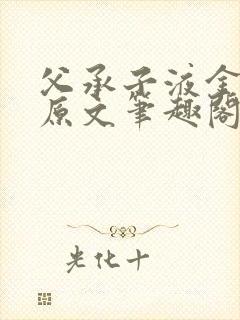 父承子液全
原文笔趣阁
光化十